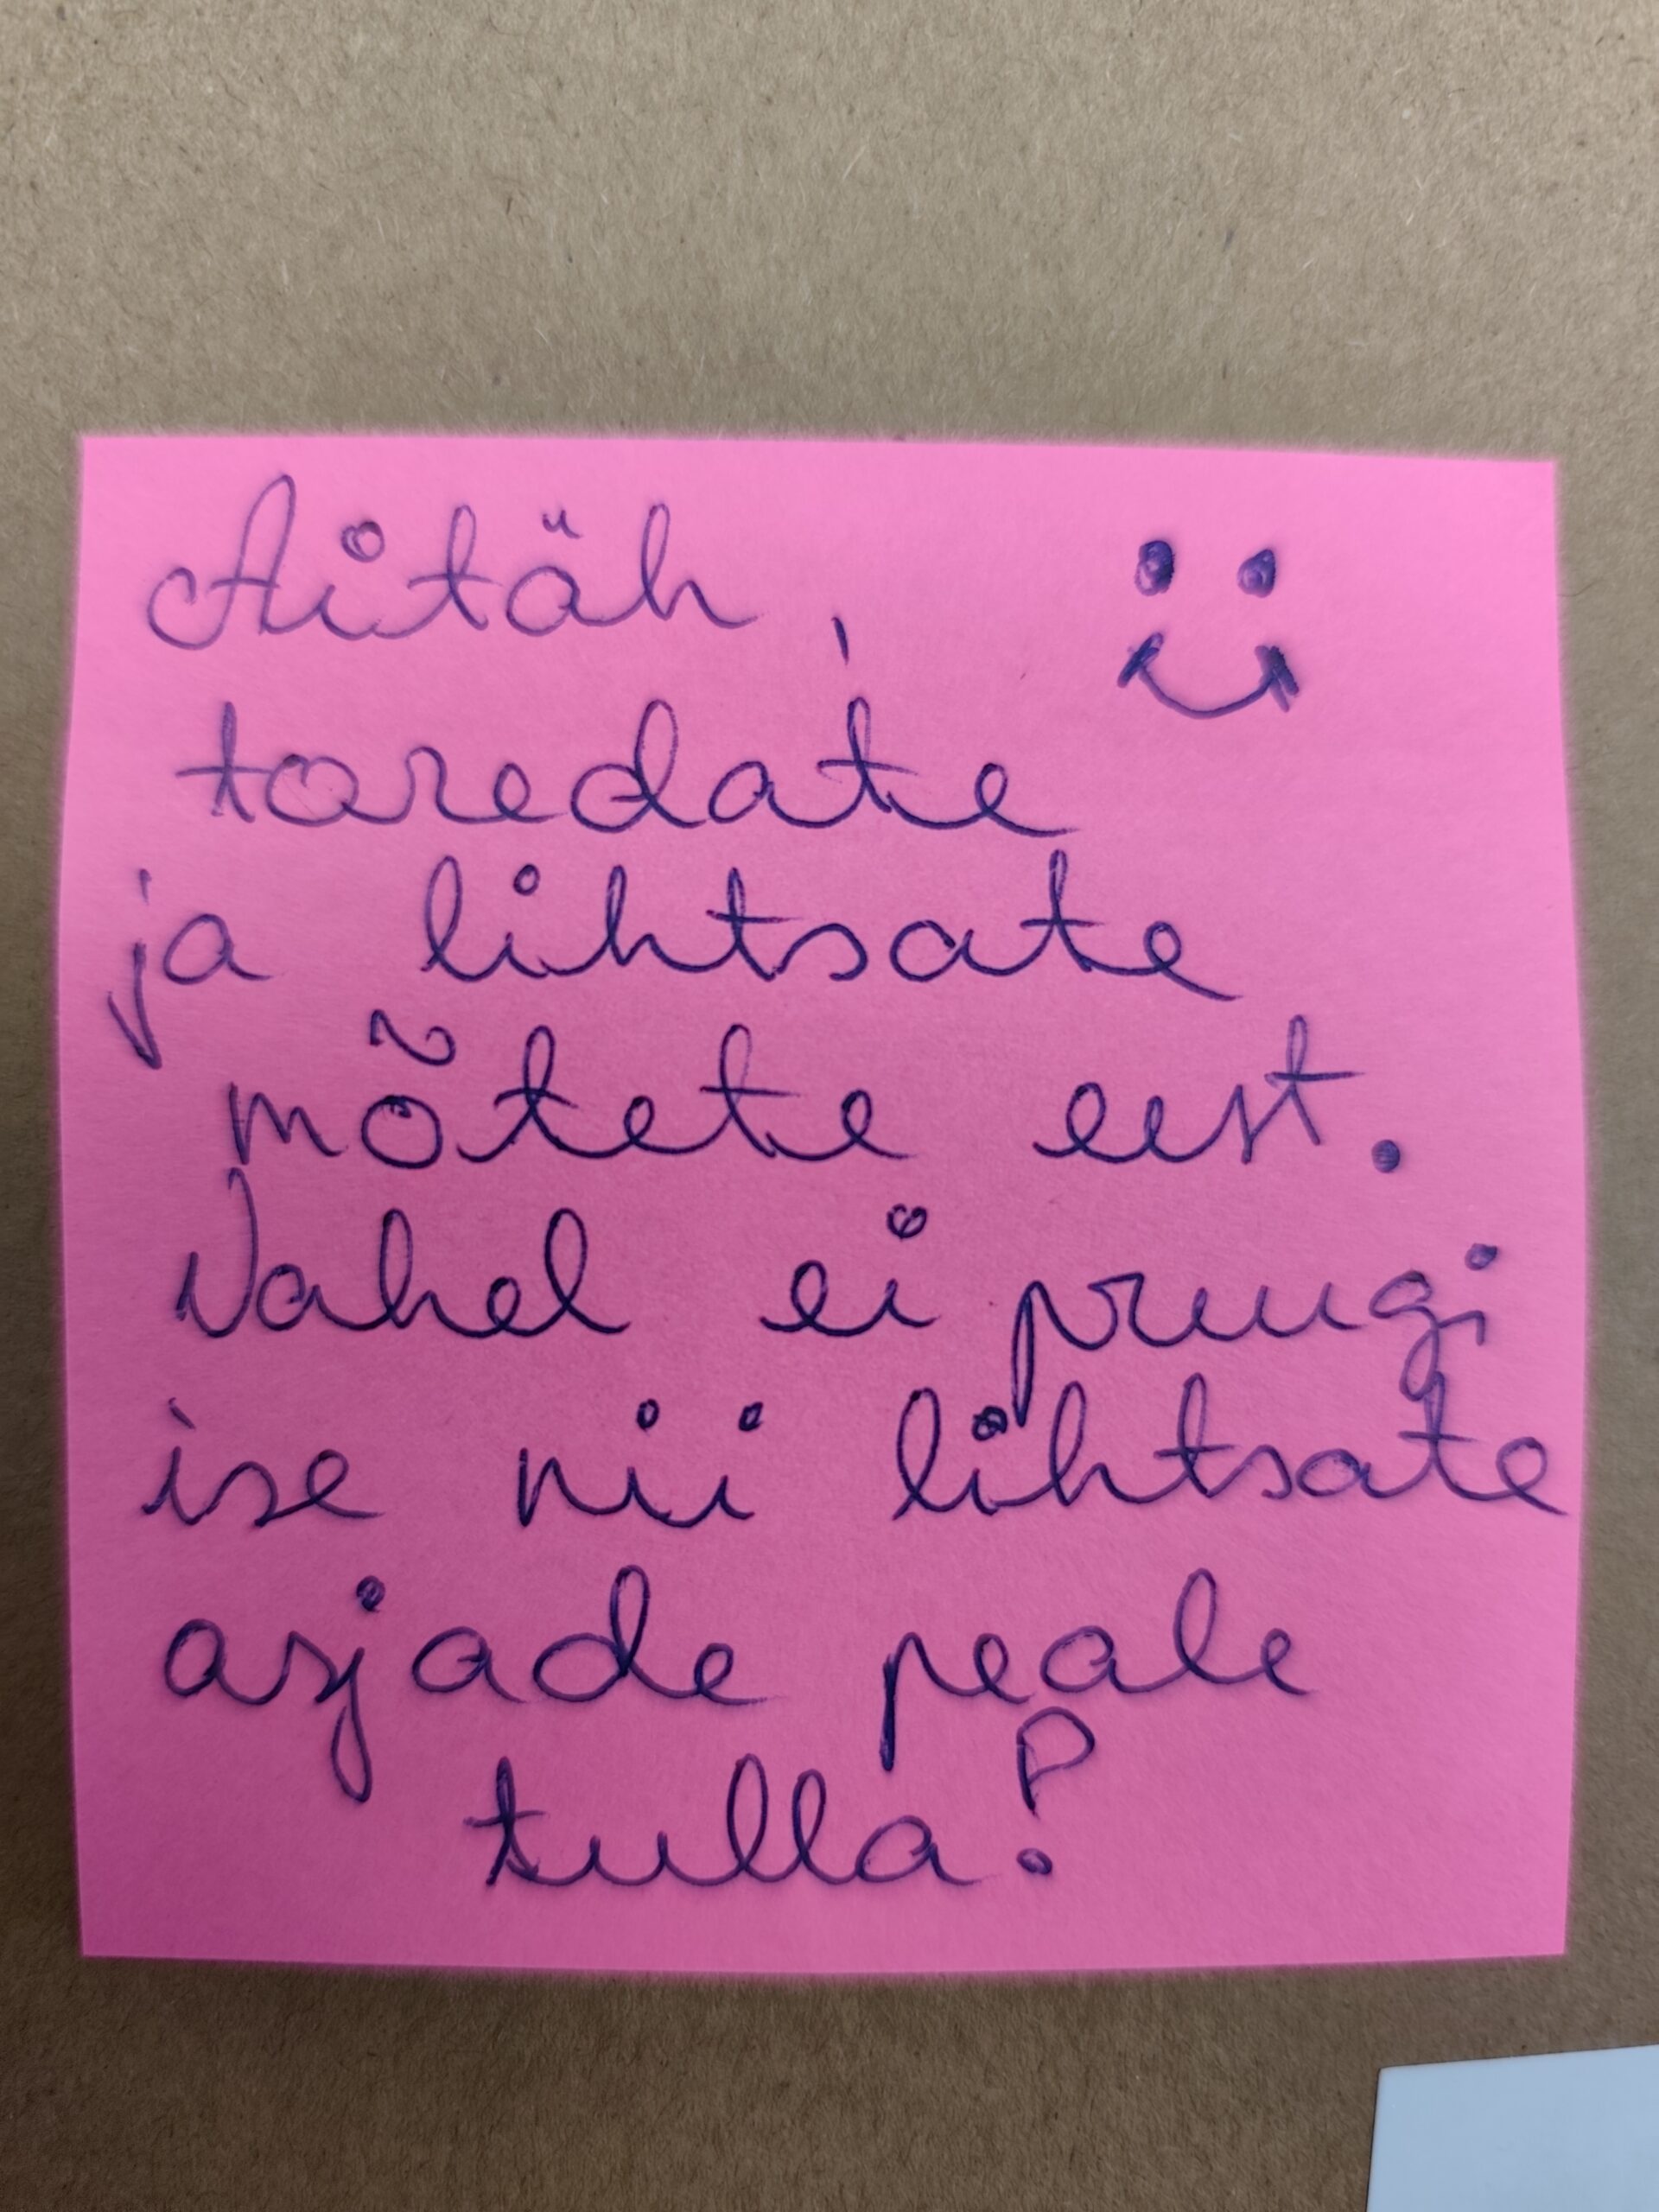 Aitäh,
toredate
ja lihtsate
mõtete eest.
Vahel ei pruugi
ise nii lihtsate
asjade peale
tulla!